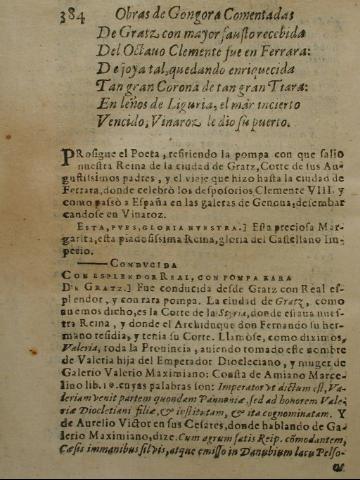 384 Obras de Gongora Comentadas
De Gratz, con mayor fausto recebida
Del Octauo Clemente fue en Ferrara:
De joya tal, quedando enriquecida
Tan gran Corona de tan gran Tiara:
En leños de Liguria, el mar incierto
Vencido, Vinaroz le dio su puerto.
PRosigue el Poeta, refiriendo la pompa con que salio
nuestra Reina de la ciudad de Gratz, Corte de sus Au-
gustissimos padres, y el viaje que hizo hasta la ciudad de
Ferrara, donde celebró los desposorios Clemente VIII. y
como passò a España en las galeras de Genoua, desembar
candose en Vinaroz.
ESTA, PVES, GLORIA NVESTRA.] Esta preciosa Mar-
garita, esta piadosissima Reina, gloria del Castellano Im-
perio.
CONDVCIDA
CON ESPLENDOR REAL, CON POMPA RARA
DE GRATZ.] Fue conducida desde Gratz con Real es-
plendor, y con rara pompa. La ciudad de Gratz, como
auemos dicho, es la Corte de la Styria, donde estaua nues-
tra Reina, y donde el Archiduque don Fernando su her-
mano residia, y tenia su Corte. Llamòse, como diximos,
Valeria, toda la Prouincia, auiendo tomado este nombre
de Valeria hija del Emperador Diocleciano, y muger de
Galerio Valerio Maximiano: Consta de Amiano Marce-
lino lib. 19. cuyas palabras son: Imperator vt dictum est, Va-
leriam venit partem quondam Pannoniæ, sed ad honorem Vale-
riæ Diocletiani filiæ, & institutam, & ita cognominatam. Y
de Aurelio Victor en sus Cesares, donde hablando de Ga-
lerio Maximiano, dize. Cum agrum satis Reip. cõmodantem,
Cæsis immanibus siluis, atque emisso in Danubium lacu Pelso-